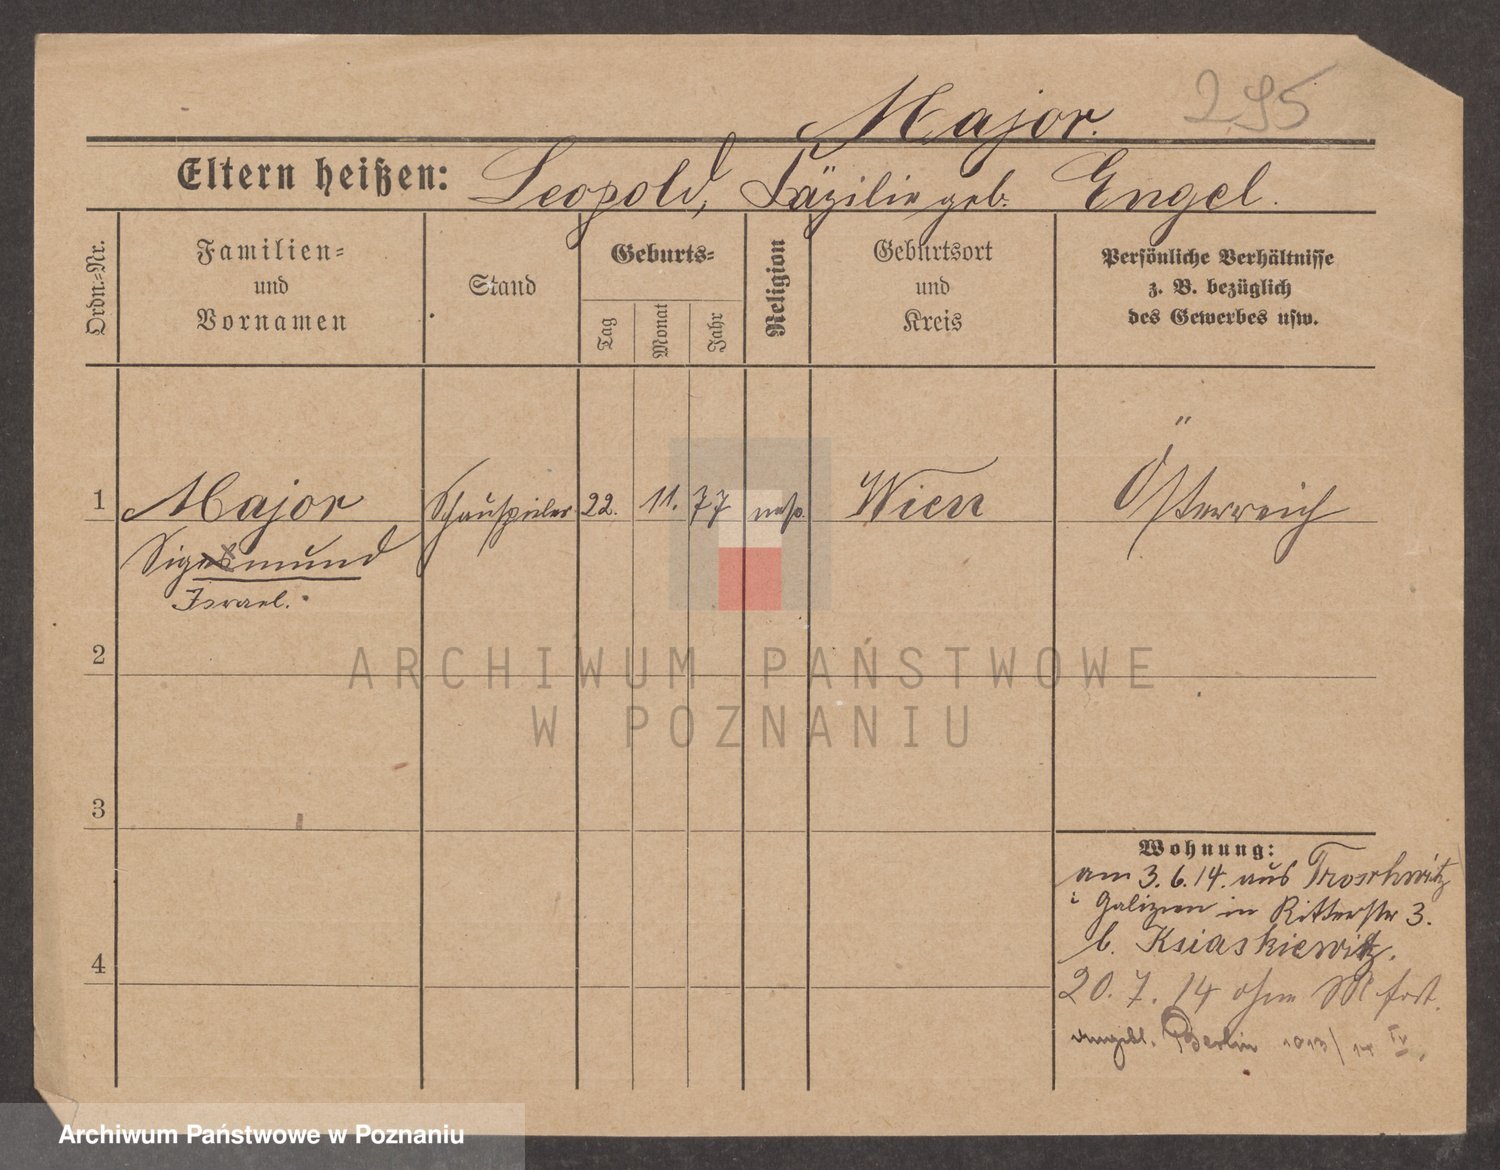 Major. 295
Eltern heißen: Leopold, Zäzilie geb. Engel.
Ordn.-Nr.
Familien-
und
Vornamen
Stand
Geburts-
Tag
Monat
Jahr
Religion
Geburtsort
und
Kreis
Persönliche Verhältnisse
z. B. bezüglich
des Gewerbes usw.
1 Major Schauspieler 22. 11. 77 mos. Wien Österreich
Israel.
2
3
4
Wohnung:
am 3.6.14. aus
i Galizien in Ritterstr 3.
b. Ksiaskiewitz.
20. 7. 14 ohne M fort.
angebl. Berlin 1913/14
ARCHIWUM PAŃSTWOWE
W POZNANIU
Archiwum Państwowe w Poznaniu